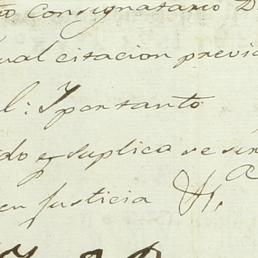 to Consignatario D
ual citacion previa
l: Y por tanto
do y suplica se sir
en Justicia